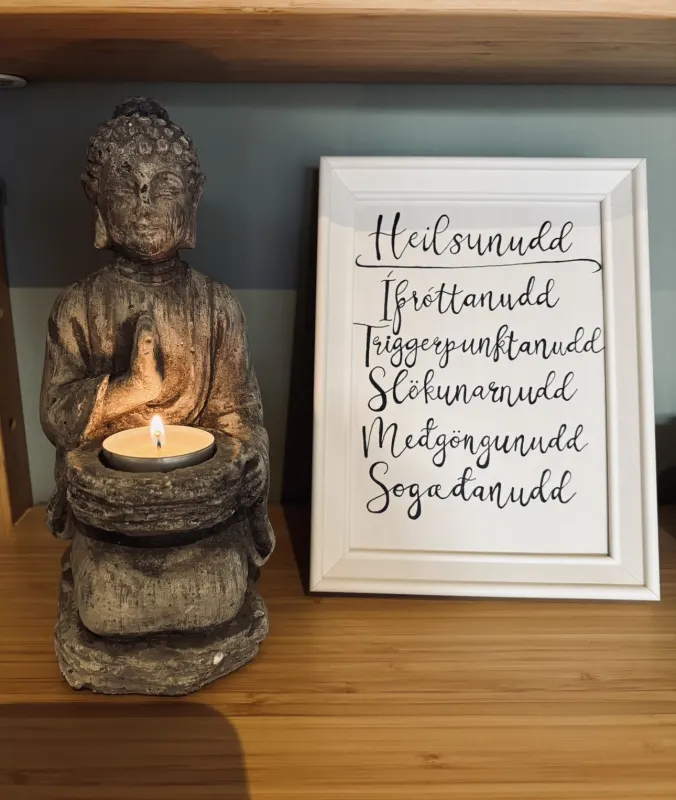 Heilsunudd
Íþróttanudd
Triggerpunktanudd
Slökunarnudd
Međgöngunudd
Sogæđanudd